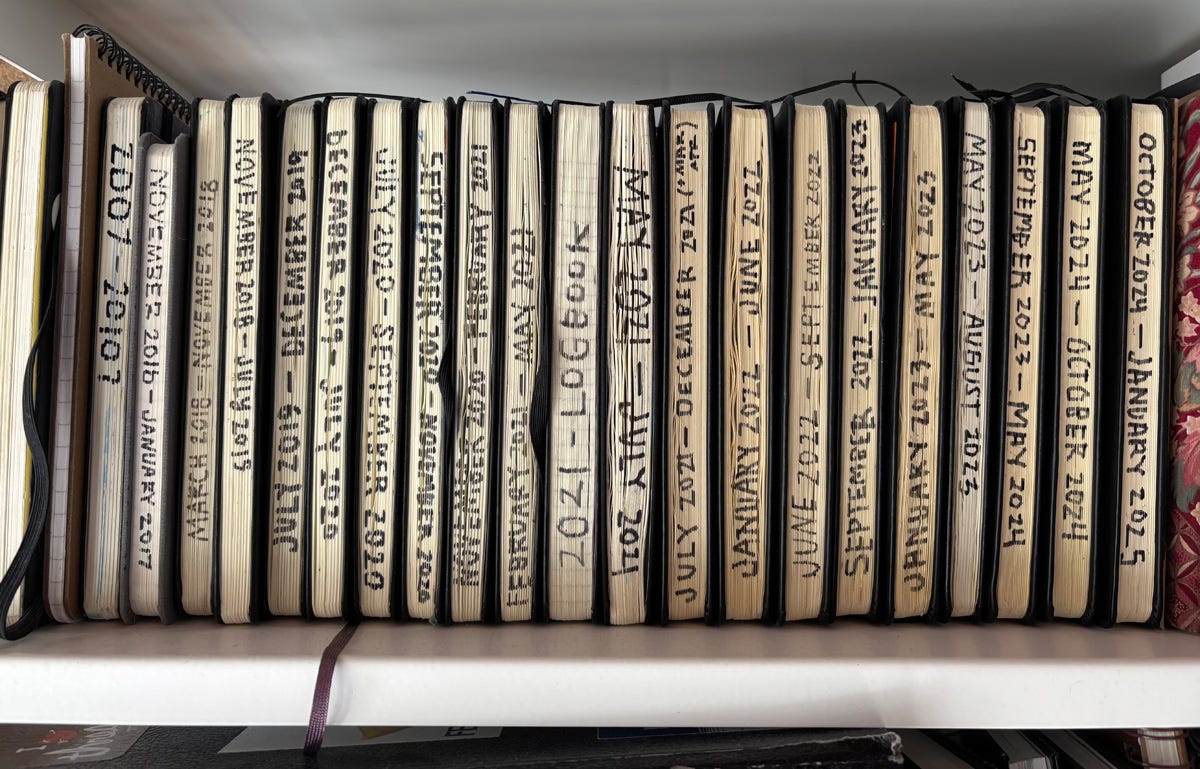 2007-2010?
NOVEMBER 2016-JANUARY 2017
MARCH 2018-NOVEMBER 2018
NOVEMBER 2018-JULY 2019
JULY 2019 - DECEMBER 2019
DECEMBER 2019-JULY 2020
JULY 2020-SEPTEMBER 2020
SEPTEMBER 2020-NOVEMBER 2020
NOVEMBER 2020-FEBRUARY 2021
FEBRUARY 2021 - MAY 2021
2021-LOGBOOK
MAY 2021-JULY 2021
JULY 2021-DECEMBER 2021
JANUARY 2022 - JUNE 2022
JUNE 2022 - SEPTEMBER 2022
SEPTEMBER 2022-JANUARY 2023
JANUARY 2023-MAY 2023
MAY 2023-AUGUST 2023
SEPTEMBER 2023-MAY 2024
MAY 2024-OCTOBER 2024
OCTOBER 2024-JANUARY 2025
I